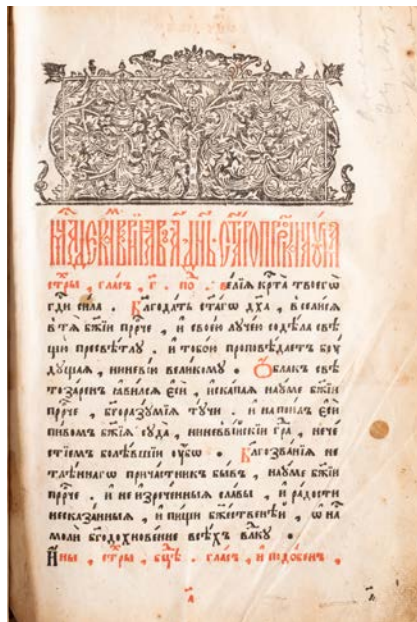 стры , гласъ , г҃ . по . велїѧ крⷭ҇та твоегѡ̀
гдⷭ҇и сила . Благодать ст҃агѡ дх҃а , вселисѧ
в тѧ бж҃їи прⷪ҇рче , и своею лучею содѣла свѣ
щю пресвѣтлу . и тобою проповѣдаетъ бꙋ
дꙋщаѧ , ниневїю великомꙋ . Облакъ свѣ
тозаренъ ꙗвилсѧ є҆сѝ , искапаѧ наꙋме бж҃їи
прⷪ҇рче , бг҃оразꙋмїѧ тꙋчи . и напоилъ є҆сѝ
пивомъ бж҃їѧ сꙋда̀ , ниневїйскїи гра́ , нече
стїемъ болѣвшїи ᲂу҆бо . Благозванїѧ не
тлѣннагѡ причастникъ бывъ , наꙋме бж҃їи
прⷪ҇рче . и неизреченныѧ славы , и радости
несказанныѧ , и пищи бжⷭ҇твеныи , ѡ на
моли бг҃одохновение всѣхъ влⷣкꙋ .
Ны́нѣ , стры , бцⷣѣ . гласъ , и подобенъ ,